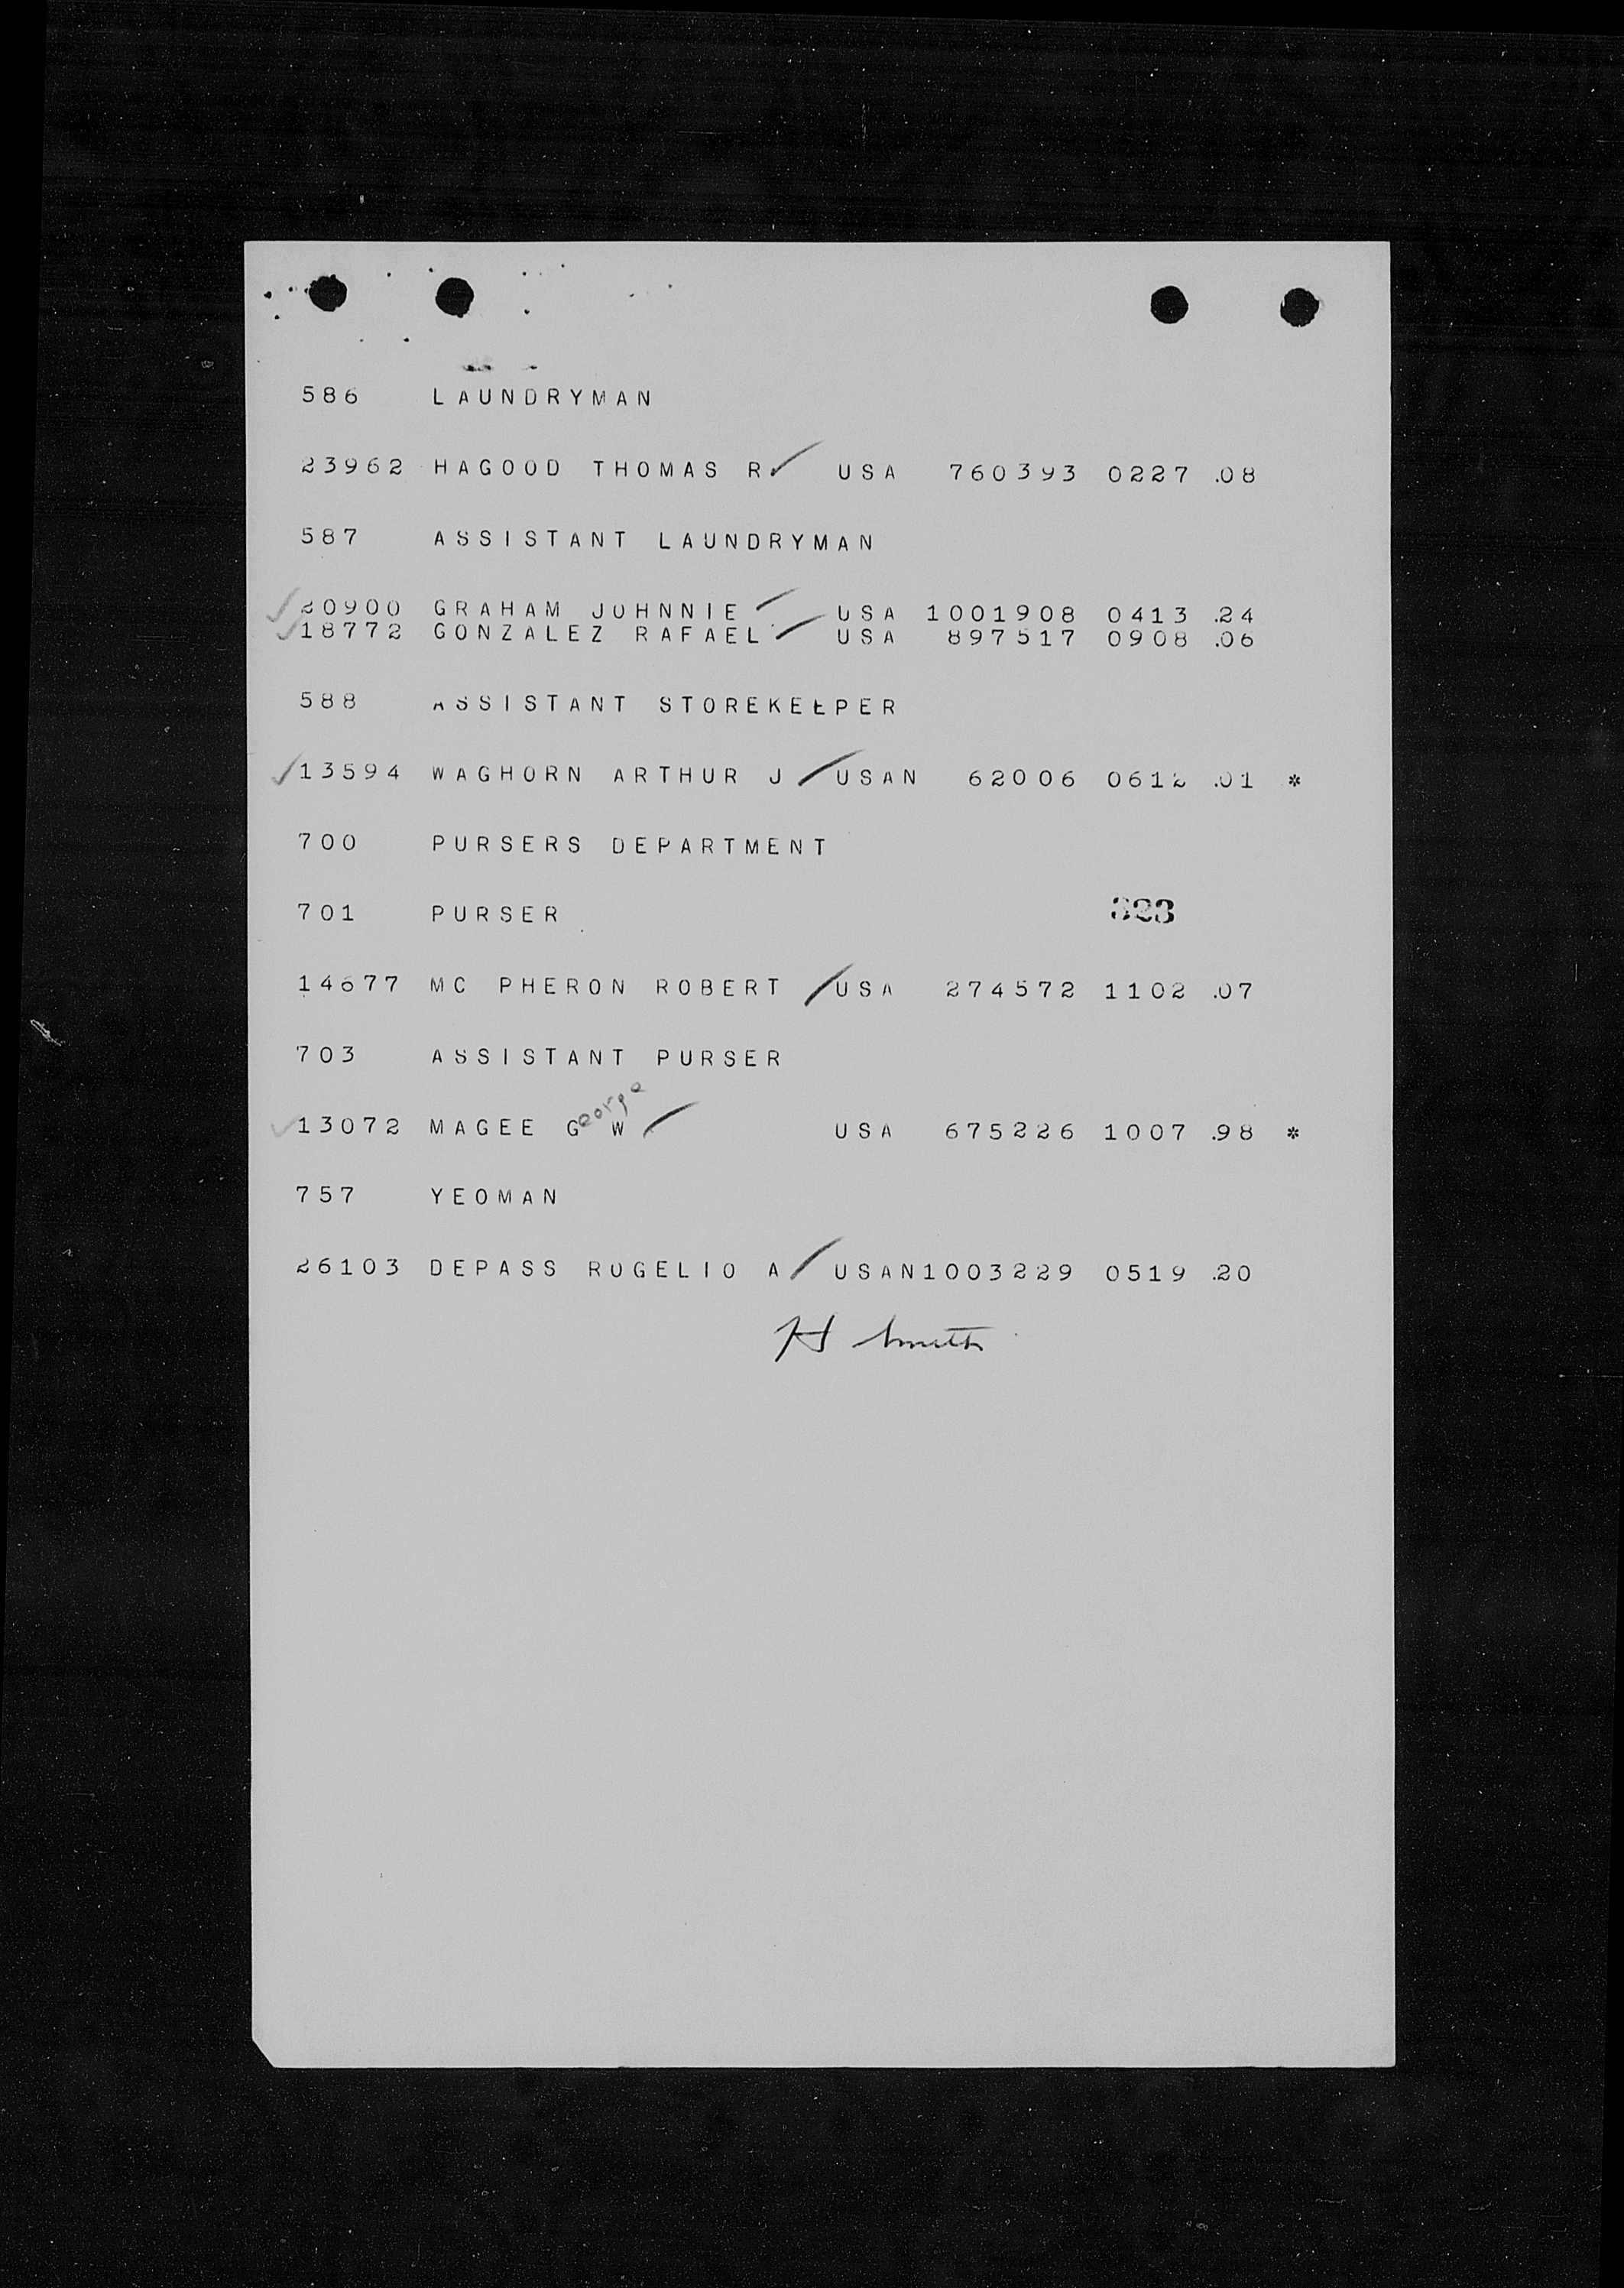 586 LAUNDRYMAN
23962 HAGOOD THOMAS R USA 760393 0227 .08
587 ASSISTANT LAUNDRYMAN
20900 GRAHAM JOHNNIE USA 1001908 0413 .24
18772 GONZALEZ RAFAEL USA 897517 0908 .06
588 ASSISTANT STOREKEEPER
13594 WAGHORN ARTHUR J USAN 62006 0612 .01 *
700 PURSERS DEPARTMENT
701 PURSER 323
14677 MC PHERON ROBERT USA 274572 1102 .07
703 ASSISTANT PURSER
13072 MAGEE George W USA 675226 1007 .98 *
757 YEOMAN
26103 DEPASS ROGELIO A USAN1003229 0519 .20
H Smith